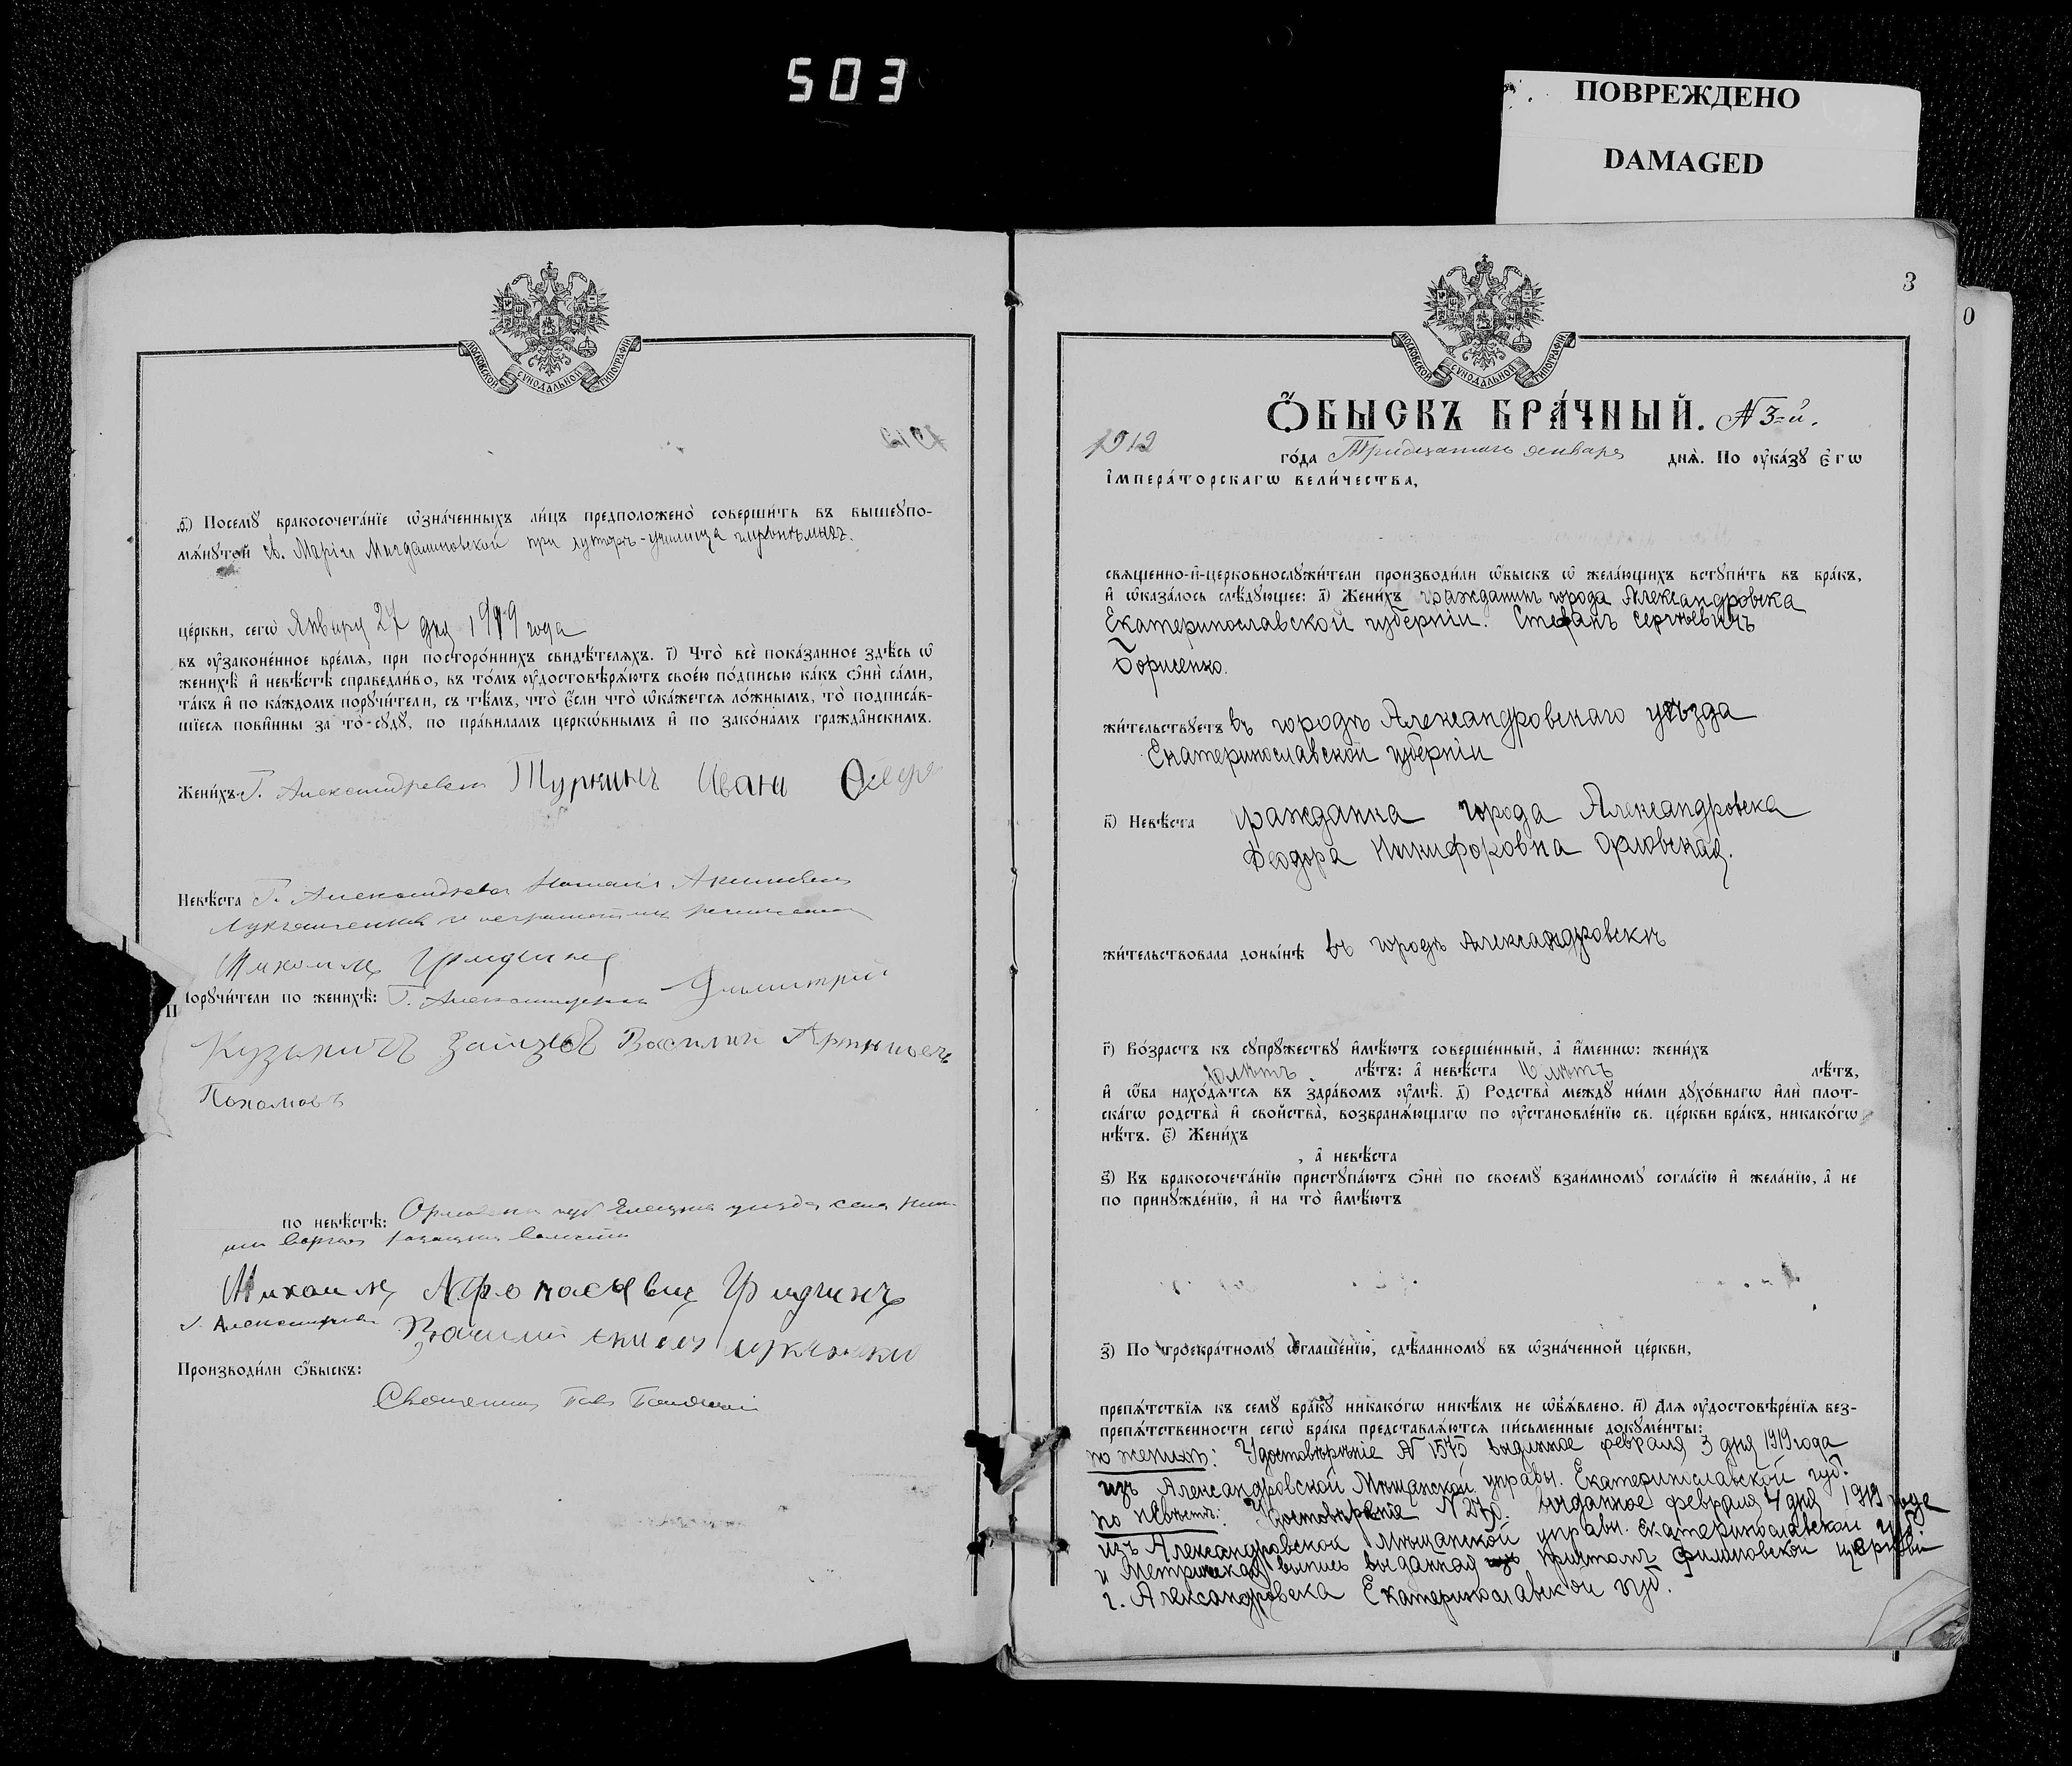 503
ПОВРЕЖДЕНО
DAMAGED
МОСКОВСКОЙ СѴНОДАЛЬНОЙ ТИПОГРАФІИ
ѳ҃) Посемꙋ̀ бракосочета́нїе ѡ҆зна́ченныхъ ли́цъ предположено̀ соверши́ть въ вышеꙋпо-
мѧ́нꙋтой св. Маріи Магдалиновской при хуторѣ-училища
це́ркви, сегѡ̀ Января 27 дня 1919 года
въ ᲂу҆зако́ненное вре́мѧ, при посторо́ннихъ свидѣ́телѧхъ. і҃) Что̀ всѐ пока́занное здѣ́сь ѡ҆
женихѣ̀ и҆ невѣ́стѣ справедли́во, въ то́мъ ᲂу҆достовѣрѧ́ютъ свое́ю по́дписью ка́къ ѻ҆нѝ са́ми,
та́къ и҆ по ка́ждомъ порꙋчи́тели, съ тѣ́мъ, что̀ є҆́сли что̀ ѡ҆ка́жетсѧ ло́жнымъ, то̀ подписа́в-
шїесѧ пови́нны за то̀ сꙋдꙋ̀, по пра́виламъ церкѡ́внымъ и҆ по зако́намъ гражда́нскимъ.
Жени́хъ Г. Александровска Туркинъ Иванъ
Невѣ́ста Г. Александровска Наталія Акимовна
Михаилъ Гридчинъ
Порꙋчи́тели по женихѣ̀: Г. Александровска Димитрій
Кузьмичъ Зайцевъ Василий
Пахомовъ
по невѣ́стѣ: Орловской губ Елецкаго уѣзда села
волости
Михаилъ Афонасьевич Гридчинъ
г. Александровска Василий
Производи́ли ѻ҆́быскъ:
Священникъ
3
0
МОСКОВСКОЙ СѴНОДАЛЬНОЙ ТИПОГРАФІИ
Ѻ҆́БЫСКЪ БРА́ЧНЫЙ. № 3-й.
1919 го́да Тридцатаго января днѧ̀. По ᲂу҆ка́зꙋ є҆гѡ̀
і҆мпера́торскагѡ вели́чества,
свѧще́нно-и҆-церковнослꙋжи́тели производи́ли ѻ҆́быскъ ѡ҆ жела́ющихъ встꙋпи́ть въ бра́къ,
и҆ ѡ҆каза́лось слѣ́дꙋющее: а҃) Жени́хъ гражданинъ города Александровска
Екатеринославской губерніи. Стефанъ Сергѣевичъ
Борисенко.
жи́тельствꙋетъ въ городѣ Александровскаго уѣзда
Екатеринославской губерніи
в҃) Невѣ́ста гражданка города Александровска
Феодора Никифоровна Орловская.
жи́тельствовала доны́нѣ въ городѣ Александровскѣ
г҃) Во́зрастъ къ сꙋпрꙋ́жествꙋ и҆мѣ́ютъ соверше́нный, а҆ и҆́меннѡ: жени́хъ
лѣтъ лѣ́тъ: а҆ невѣ́ста лѣтъ лѣ́тъ,
и҆ ѻ҆́ба нахо́дѧтсѧ въ здра́вомъ ᲂу҆мѣ̀. д҃) Родства̀ междꙋ̀ ни́ми дꙋхо́внагѡ и҆лѝ плот-
ска́гѡ родства̀ и҆ свойства̀, возбранѧ́ющагѡ по ᲂу҆становле́нїю св. це́ркви бра́къ, никако́гѡ
нѣ́тъ. є҃) Жени́хъ
, а҆ невѣ́ста
ѕ҃) Къ бракосочета́нїю пристꙋпа́ютъ ѻ҆нѝ по своемꙋ̀ взаи́мномꙋ согла́сїю и҆ жела́нїю, а҆ не
по принꙋжде́нїю, и҆ на то̀ и҆мѣ́ютъ
з҃) По троекра́тномꙋ ѡ҆глаше́нїю, сдѣ́ланномꙋ въ ѡ҆зна́ченной це́ркви,
препѧ́тствїѧ къ семꙋ̀ бра́кꙋ никако́гѡ никѣ́мъ не ѡ҆б̾ѧ́влено. и҃) Длѧ̀ ᲂу҆достовѣре́нїѧ без-
препѧ́тственности сегѡ̀ бра́ка представлѧ́ютсѧ пи́сьменные докꙋме́нты:
по женихѣ: Удостовѣреніе № 1575 выданное февраля 3 дня 1919 года
изъ Александровской Мѣщанской управы. Екатеринославской губ.
по невѣстѣ: Удостовѣреніе выданное февраля 4 дня 1919 года
изъ Александровской Мѣщанской управы. Екатеринославской губ
и Метрическая выпись выданная причтомъ церкви
г. Александровска Екатеринославской губ.